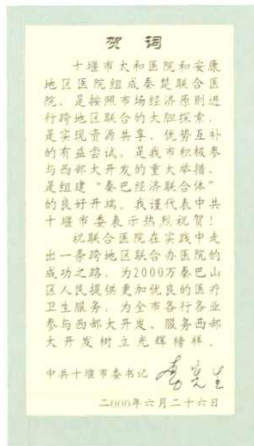 贺词
十堰市太和医院和安康
地区医院组成秦楚联合医
院，是按照市场经济原则进
行跨地区联合的大胆探索，
是实现资源共享、优势互补
的有益尝试，是我市积极参
与西部大开发的重大举措，
是组建“秦巴经济联合体”
的良好开端。我谨代表中共
十堰市委表示热烈祝贺！
祝联合医院在实践中走
出一条跨地区联合办医院的
成功之路，为2000万秦巴山
区人民提供更加优良的医疗
卫生服务，为全市各行各业
参与西部大开发、服务西部
大开发树立光辉榜样。
中共十堰市委书记
二000年六月二十六日